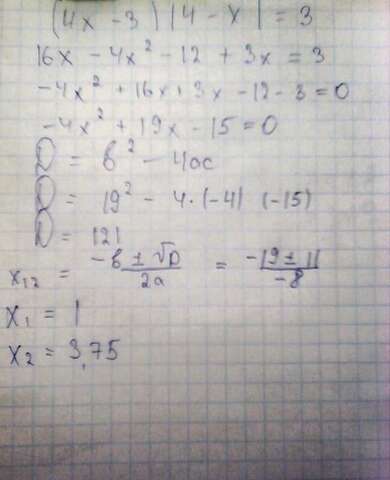 (4x - 3)(4 - x) = 3
16x - 4x² - 12 + 3x = 3
-4x² + 16x + 3x - 12 - 3 = 0
-4x² + 19x - 15 = 0
D = b² - 4ac
D = 19² - 4·(-4) (-15)
D = 121
x₁₂ = (-b ± √D)/(2a) = (-19 ± 11)/(-8)
x₁ = 1
x₂ = 3,75